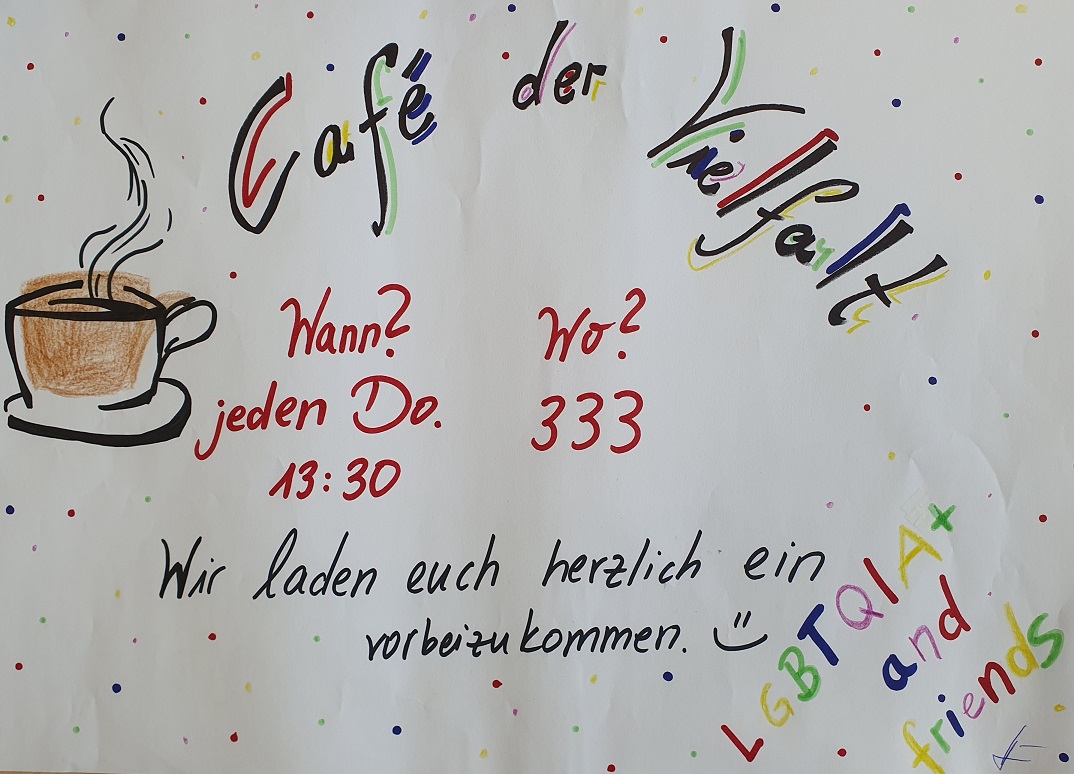 Café der Vielfalt
Wann? Wo?
jeden Do. 333
13:30
Wir laden euch herzlich ein
vorbeizukommen.
LGBTQIA+
and
friends